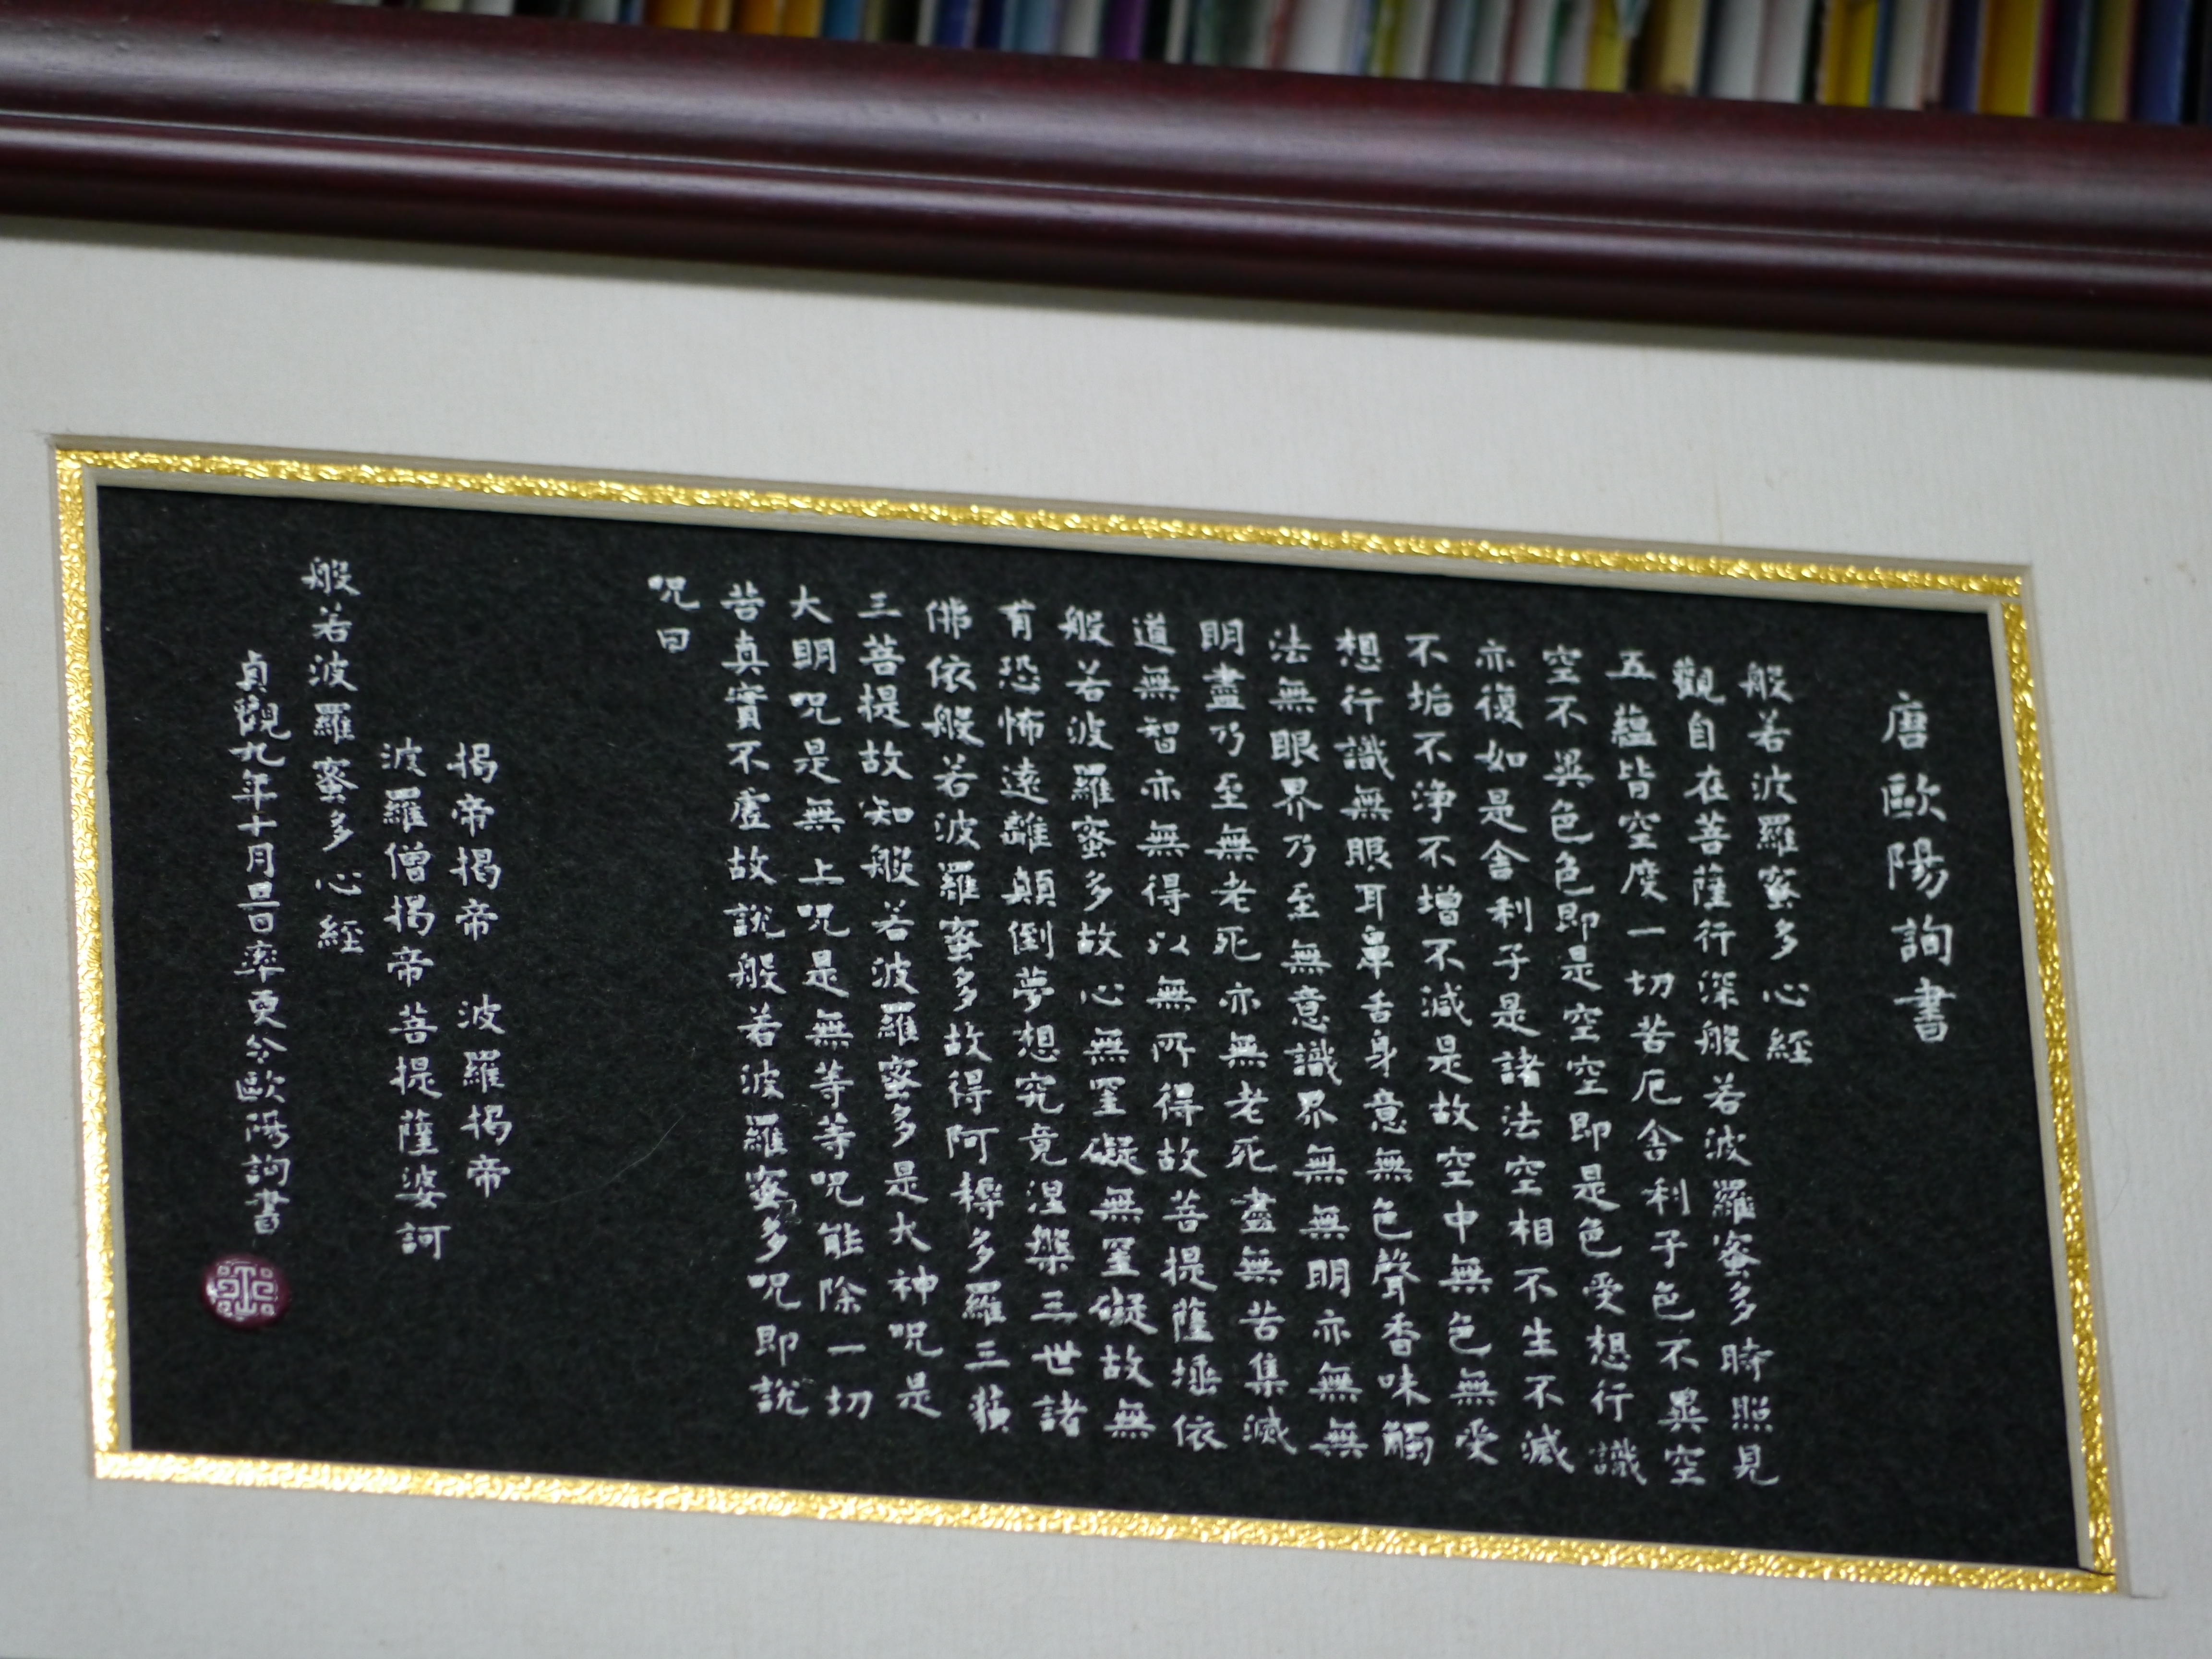 唐歐陽詢書
般若波羅蜜多心經
觀自在菩薩行深般若波羅蜜多時照見
五蘊皆空度一切苦厄舍利子色不異空
空不異色色即是空空即是色受想行識
亦復如是舍利子是諸法空相不生不滅
不垢不淨不增不減是故空中無色無受
想行識無眼耳鼻舌身意無色聲香味觸
法無眼界乃至無意識界無無明亦無無
明盡乃至無老死亦無老死盡無苦集滅
道無智亦無得以無所得故菩提薩埵依
般若波羅蜜多故心無罣礙無罣礙故無
有恐怖遠離顛倒夢想究竟涅槃三世諸
佛依般若波羅蜜多故得阿耨多羅三藐
三菩提故知般若波羅蜜多是大神呪是
大明呪是無上呪是無等等呪能除一切
苦真實不虛故說般若波羅蜜多呪即說
呪曰
揭帝揭帝 波羅揭帝
波羅僧揭帝菩提薩婆訶
般若波羅蜜多心經
貞觀九年十月旦日率更令歐陽詢書